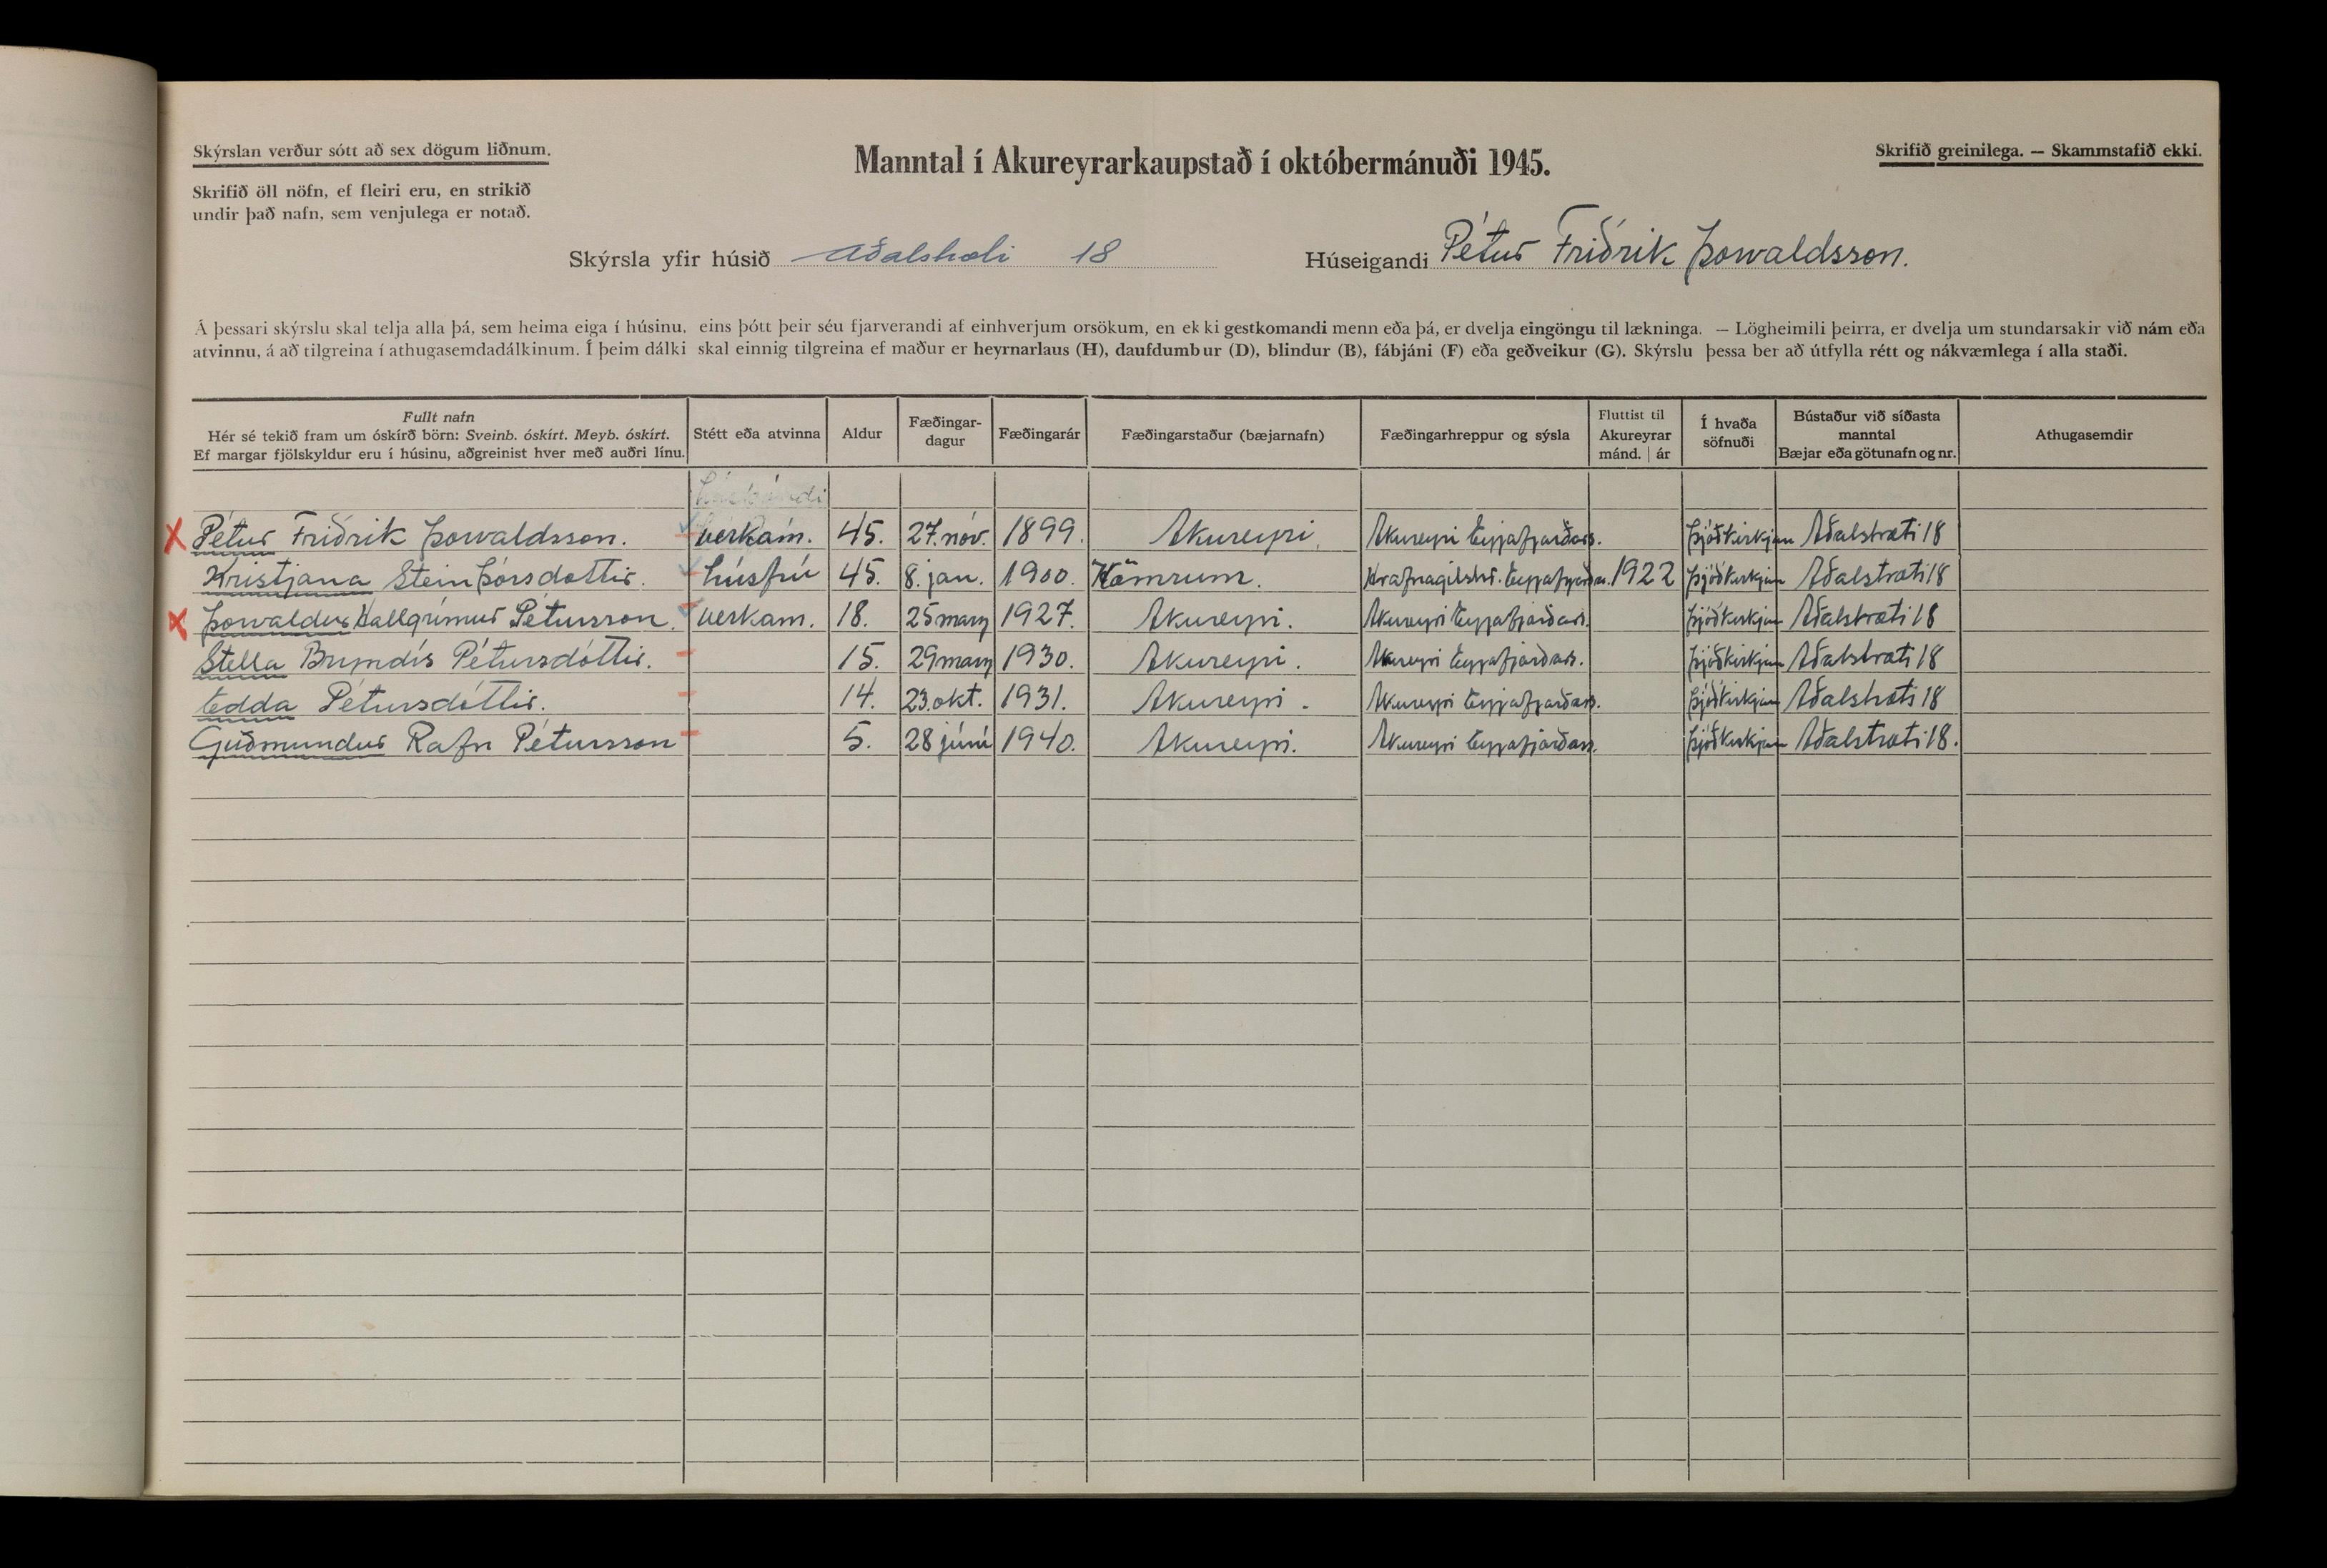 Skýrslan verður sótt að sex dögum liðnum.
Skrifið öll nöfn, ef fleiri eru, en strikið
undir það nafn, sem venjulega er notað.
Manntal í Akureyrarkaupstað í októbermánuði 1945.
Skrifið greinilega. — Skammstafið ekki.
Skýrsla yfir húsið Aðalstræti 18 Húseigandi Pétur Friðrik Þorvaldsson.
Á þessari skýrslu skal telja alla þá, sem heima eiga í húsinu, eins þótt þeir séu fjarverandi af einhverjum orsökum, en ekki gestkomandi menn eða þá, er dvelja eingöngu til lækninga. — Lögheimili þeirra, er dvelja um stundarsakir við nám eða
atvinnu, á að tilgreina í athugasemdadálkinum. Í þeim dálki skal einnig tilgreina ef maður er heyrnarlaus (H), daufdumbur (D), blindur (B), fábjáni (F) eða geðveikur (G). Skýrslu þessa ber að útfylla rétt og nákvæmlega í alla staði.
Fullt nafn
Hér sé tekið fram um óskírð börn: Sveinb. óskírt. Meyb. óskírt.
Ef margar fjölskyldur eru í húsinu, aðgreinist hver með auðri línu.
Stétt eða atvinna
Aldur
Fæðingar-
dagur
Fæðingarár
Fæðingarstaður (bæjarnafn)
Fæðingarhreppur og sýsla
Fluttist til
Akureyrar
mánd. | ár
Í hvaða
söfnuði
Bústaður við síðasta
manntal
Bæjar eða götunafn og nr.
Athugasemdir
húsbóndi
X Pétur Friðrik Þorvaldsson. verkam. 45. 27. nóv. 1899. Akureyri. Akureyri Eyjafjarðars. Þjóðkirkjan Aðalstræti 18
Kristjana Steinþórsdóttir. húsfrú 45. 8. jan. 1900. Hömrum. Hrafnagilshr. Eyjafjarðars. 1922 Þjóðkirkjan Aðalstræti 18
X Þorvaldur Hallgrímur Pétursson. verkam. 18. 25 marz 1927. Akureyri. Akureyri Eyjafjarðars. Þjóðkirkjan Aðalstræti 18
Stella Bryndís Pétursdóttir. 15. 29 marz 1930. Akureyri. Akureyri Eyjafjarðars. Þjóðkirkjan Aðalstræti 18
Edda Pétursdóttir. 14. 23. okt. 1931. Akureyri. Akureyri Eyjafjarðars. Þjóðkirkjan Aðalstræti 18
Guðmundur Rafn Pétursson 5. 28 júní 1940. Akureyri. Akureyri Eyjafjarðars. Þjóðkirkjan Aðalstræti 18.